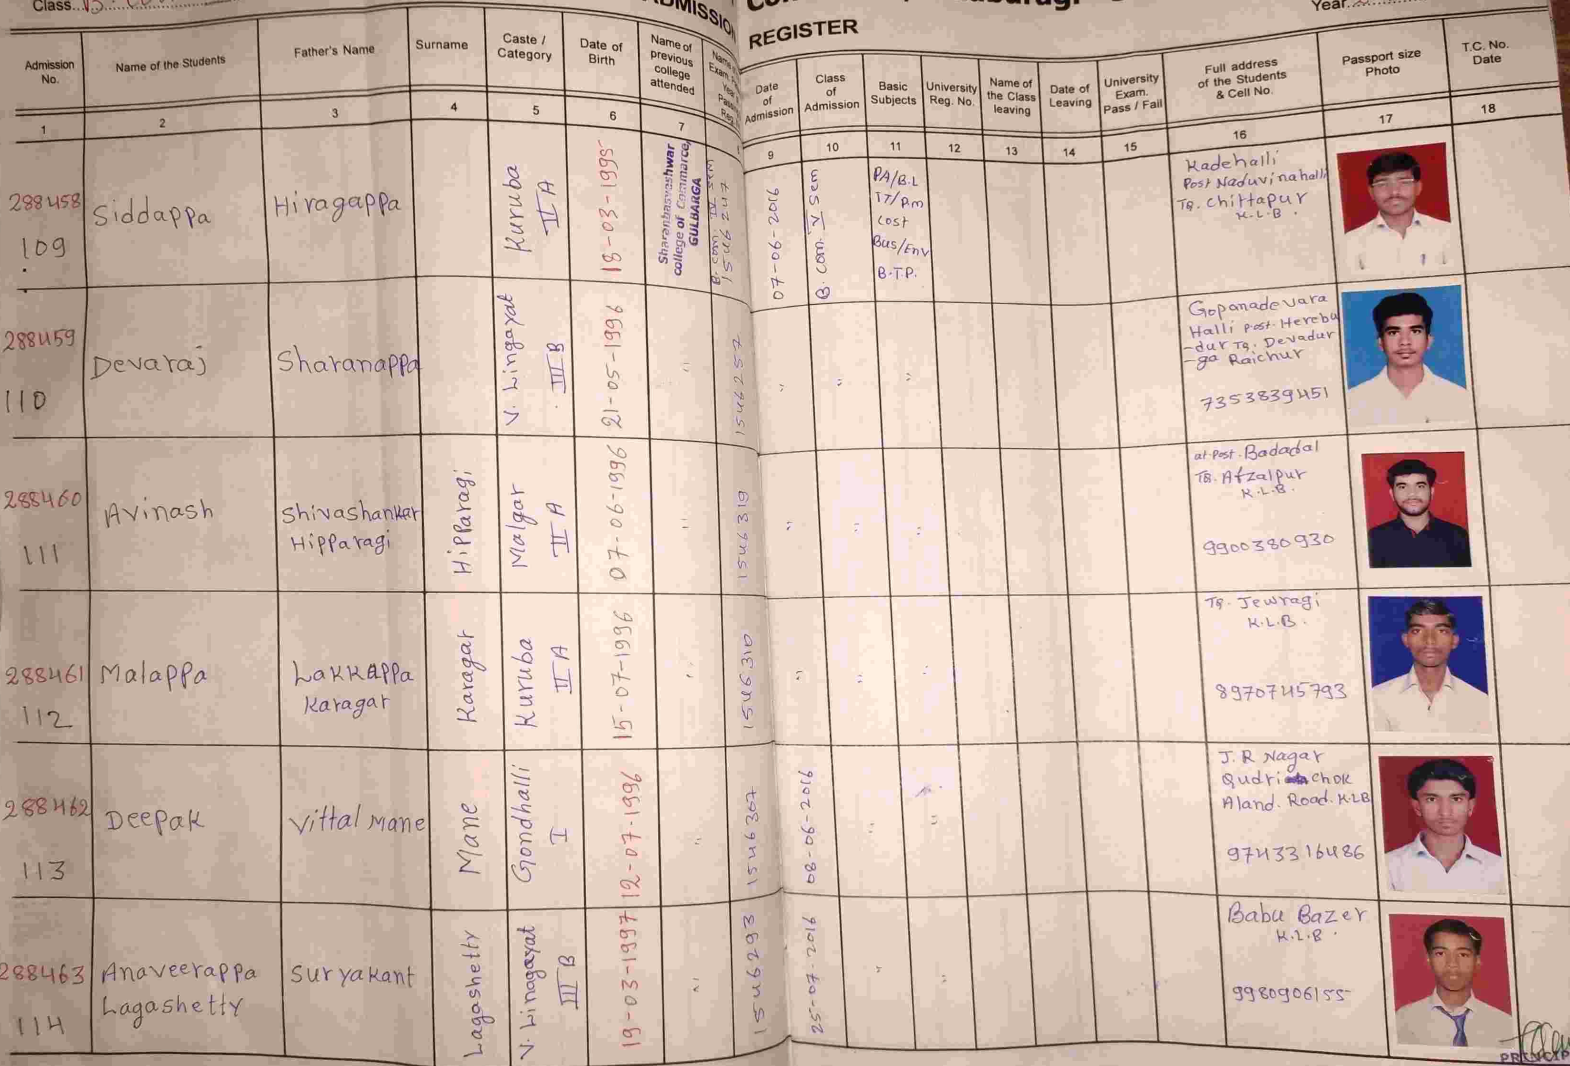 Class..
ADMISSION
REGISTER
Year..
Admission No.
Name of the Students
Father's Name
Surname
Caste / Category
Date of Birth
Name of previous college attended
Date of Admission
Class of Admission
Basic Subjects
University Reg. No.
Name of the Class leaving
Date of Leaving
University Exam. Pass / Fail
Full address of the Students & Cell No.
Passport size Photo
T.C. No. Date
1 2 3 4 5 6 7 9 10 11 12 13 14 15 16 17 18
288458
109
Siddappa
Hiragappa
Kuruba
II A
18-03-1995
Sharanbasveshwar
college of Commerce,
GULBARGA
B. com. IV sem
1546247
07-06-2016
B. com. V sem
PA/B.L
IT/P.m
cost
Bus/Env
B.T.P.
Kadehalli
Post Naduvinahalli
Tq. Chittapur
K.L.B.
288459
110
Devaraj
Sharanappa
V. Lingayat
III B
21-05-1996
"
1546257
" " "
Gopanadevara
Halli Post. Herebu
-dur Tq. Devadur
-ga Raichur
7353839451
288460
111
Avinash
Shivashankar
Hipparagi
Hipparagi
Malgar
II A
07-06-1996
"
1546319
" " "
at Post. Badadal
Tq. Afzalpur
K.L.B.
9900380930
288461
112
Malappa
Lakkappa
Karagar
Karagar
Kuruba
II A
15-07-1996
"
1546310
" " "
Tq. Jewragi
K.L.B.
8970745793
288462
113
Deepak
Vittal Mane
Mane
Gondhalli
I
12-07-1996
"
1546307
08-06-2016
" "
J.R Nagar
Qudri chok
Aland. Road. KLB
9743316486
288463
114
Anaveerappa
Lagashetty
Suryakant
Lagashetty
V. Linagayat
III B
19-03-1997
"
1546293
25-07-2016
" "
Babu Bazer
K.L.B.
9980906155